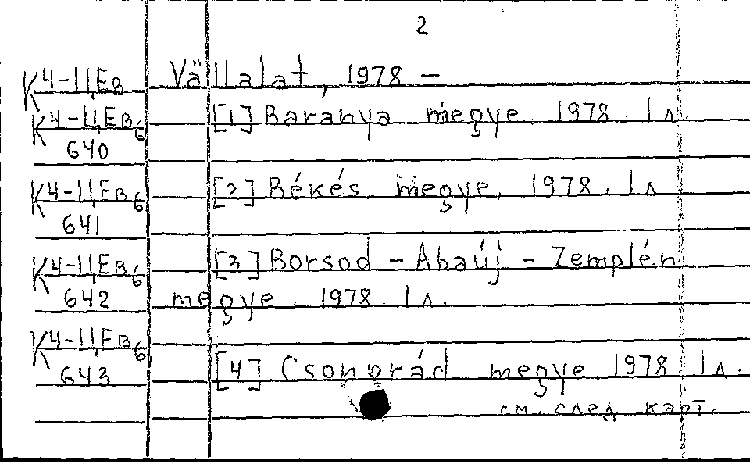 2
К4-11,Ев Vállalat, 1978 –
К4-11,Ев6 640 [1] Baranya megye 1978. 1 л.
К4-11,Ев6 641 [2] Békés megye, 1978. 1 л
К4-11,Ев6 [3] Borsod – Abaúj – Zemplén
642 megye. 1978. 1 л.
К4-11,Ев6 643 [4] Csongrád megye 1978 1 л.
см. след. карт.